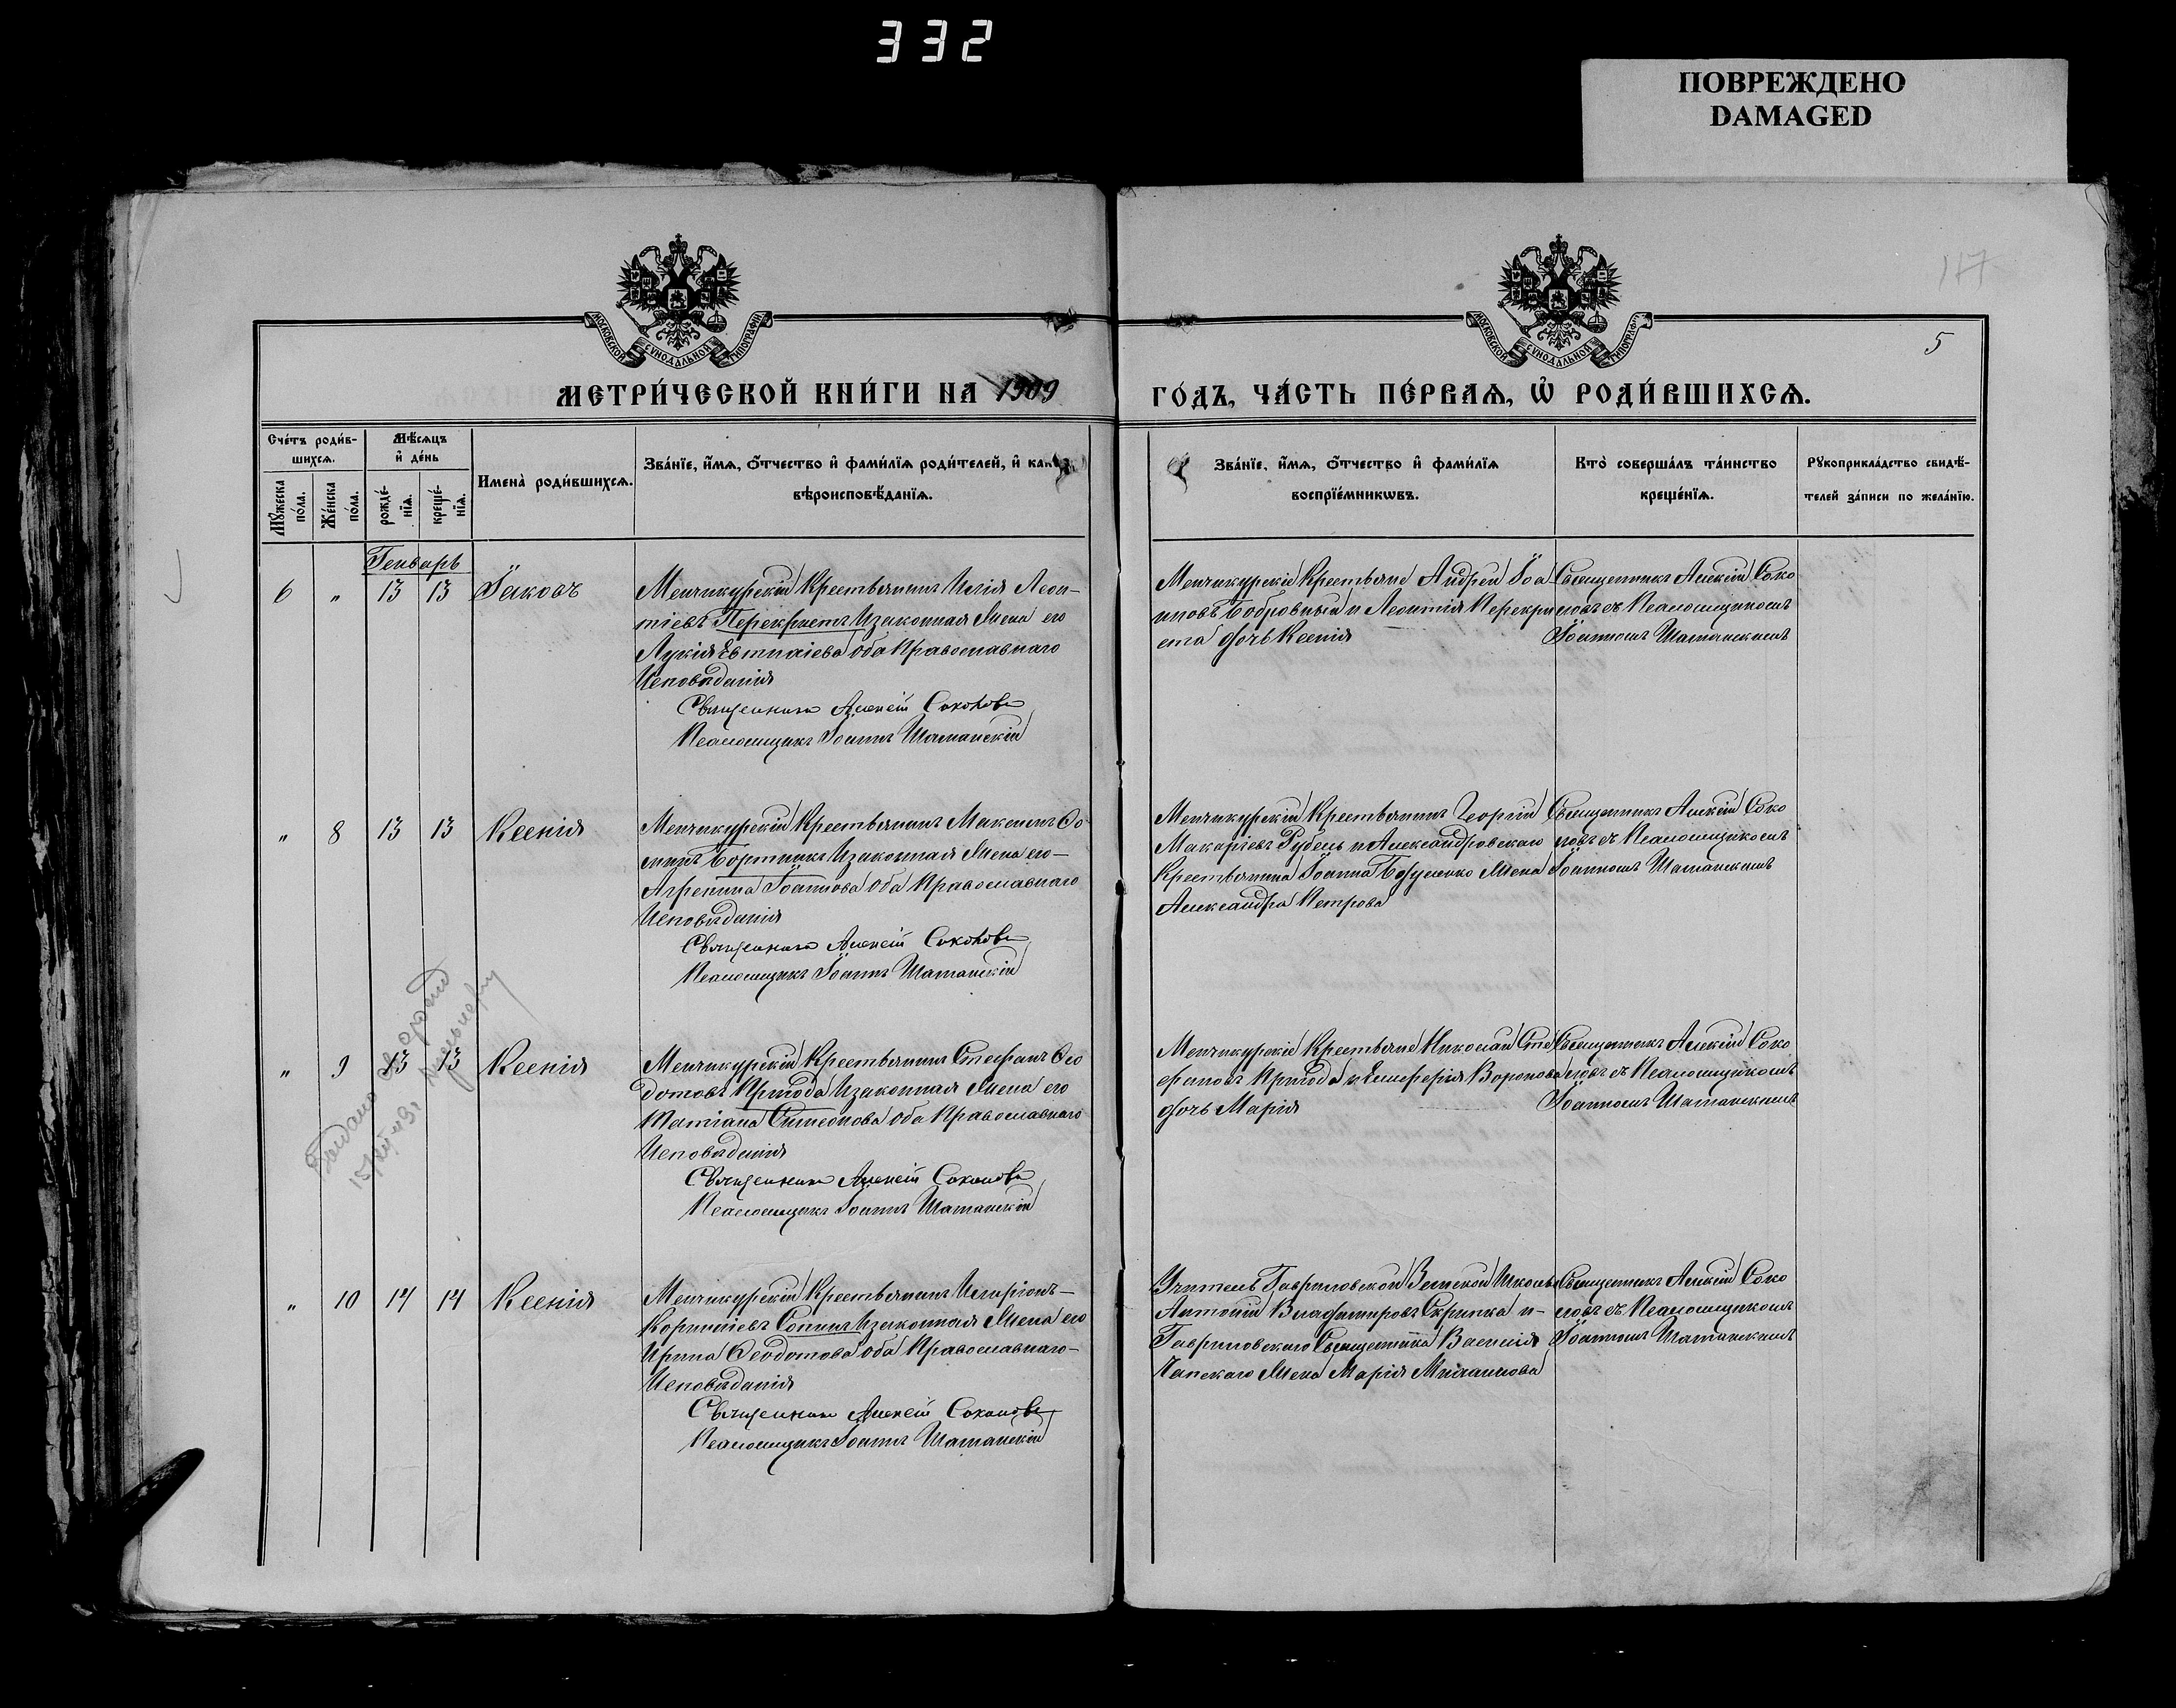 332
ПОВРЕЖДЕНО
DAMAGED
117
МОСКОВСКОЙ СѴНОДАЛЬНОЙ ТИПОГРАФІИ
МОСКОВСКОЙ СѴНОДАЛЬНОЙ ТИПОГРАФІИ
5
МЕТРИ́ЧЕСКОЙ КНИ́ГИ НА 1909
ГО́ДЪ, ЧА́СТЬ ПЕ́РВАѦ, Ѡ҆ РОДИ́ВШИХСѦ.
Сче́тъ роди́в-
шихсѧ.
Мѣ́сѧцъ
и҆ де́нь
Мꙋ́жеска по́ла.
Же́нска по́ла.
рожде́-
нїѧ.
креще́-
нїѧ.
Имена̀ роди́вшихсѧ.
Зва́нїе, и҆́мѧ, ѻ҆́тчество и҆ фами́лїѧ роди́телей, и҆ как
вѣроисповѣ́данїѧ.
Зва́нїе, и҆́мѧ, ѻ҆́тчество и҆ фами́лїѧ
воспрїе́мникѡвъ.
Кто̀ соверша́лъ та́инство
креще́нїѧ.
Рꙋкоприкла́дство свидѣ́-
телей за́писи по жела́нїю.
Генварь
6 " 13 13 Іаковъ
Менчикурскій Крестьянинъ Илія Леон-
тіевъ Перекрестъ И законная Жена его
Лукія Евтихіева оба Православнаго
Исповѣданія
Священникъ Алексій Соколовъ
Псаломщикъ Іоаннъ Шаманскій
Менчикурскіе Крестьяне Андрей Іоа
нновъ Бобровный и Леонтія Перекри
ста дочь Ксенія
Священникъ Алексій Соко
ловъ съ Псаломщикомъ
Іоанномъ Шаманскимъ
" 8 13 13 Ксенія
Менчикурскій Крестьянинъ Максимъ Ѳо
минъ Бортникъ И законная Жена его
Агрепина Іоаннова оба Православнаго
Исповѣданія
Священникъ Алексій Соколовъ
Псаломщикъ Іоаннъ Шаманскій
Менчикурскій Крестьянинъ Георгій
Макаріевъ Рубель и Александровскаго
Крестьянина Іоанна Божушко Жена
Александра Петрова
Священникъ Алексій Соко
ловъ съ Псаломщикомъ
Іоанномъ Шаманскимъ
" 9 13 13 Ксенія
Менчикурскій Крестьянинъ Стефанъ Ѳео
дотовъ Пригода И законная Жена его
Татіана Симеонова оба Православнаго
Исповѣданія
Священникъ Алексій Соколовъ
Псаломщикъ Іоаннъ Шаманскій
Менчикурскіе Крестьяне Николай Сте
фановъ Пригода и Елиферія Воронова
дочь Марія
Священникъ Алексій Соко
ловъ съ Псаломщикомъ
Іоанномъ Шаманскимъ
" 10 14 14 Ксенія
Менчикурскій Крестьянинъ Иларіонъ
Корниліевъ Сопинъ И законная Жена его
Ирина Ѳеодотова оба Православнаго
Исповѣданія
Священникъ Алексій Соколовъ
Псаломщикъ Іоаннъ Шаманскій
Учитель Гавриловской Земской Школы
Антоній Владимировъ Скрипка и
Гавриловскаго Священника Василія
Чапскаго Жена Марія Михаилова
Священникъ Алексій Соко
ловъ съ Псаломщикомъ
Іоанномъ Шаманскимъ